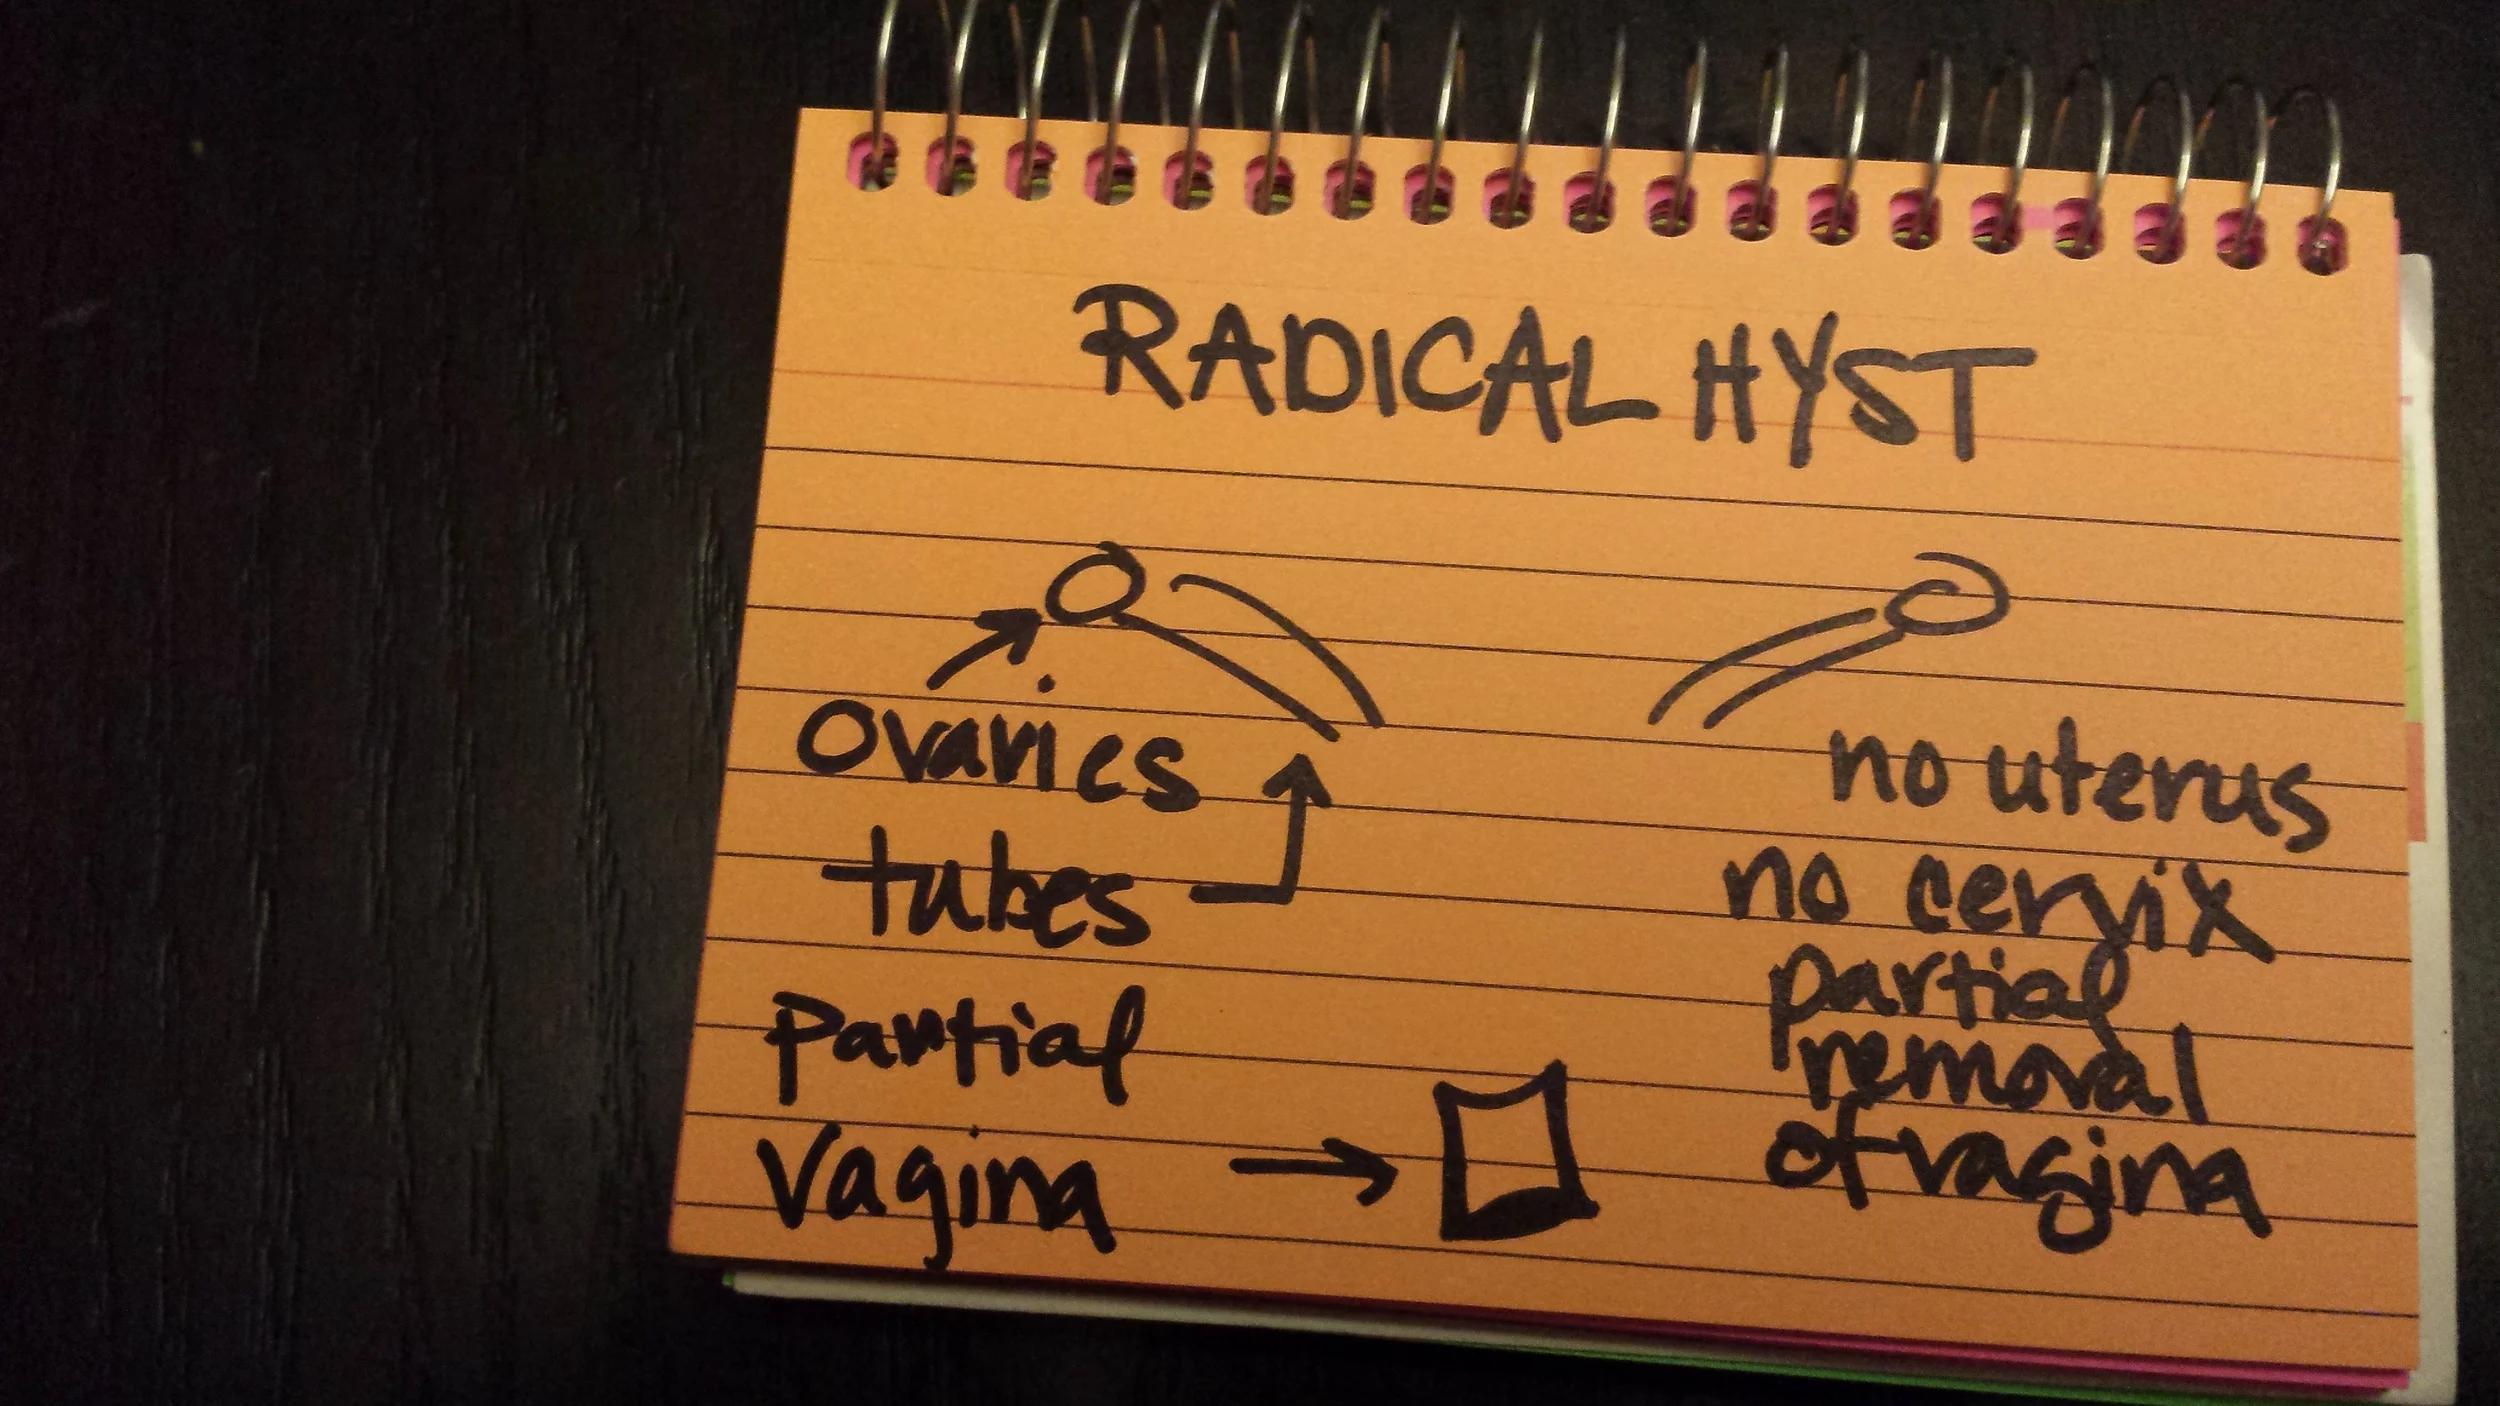 RADICAL HYST
Ovaries
tubes
Partial
Vagina
no uterus
no cervix
partial
removal
of vagina